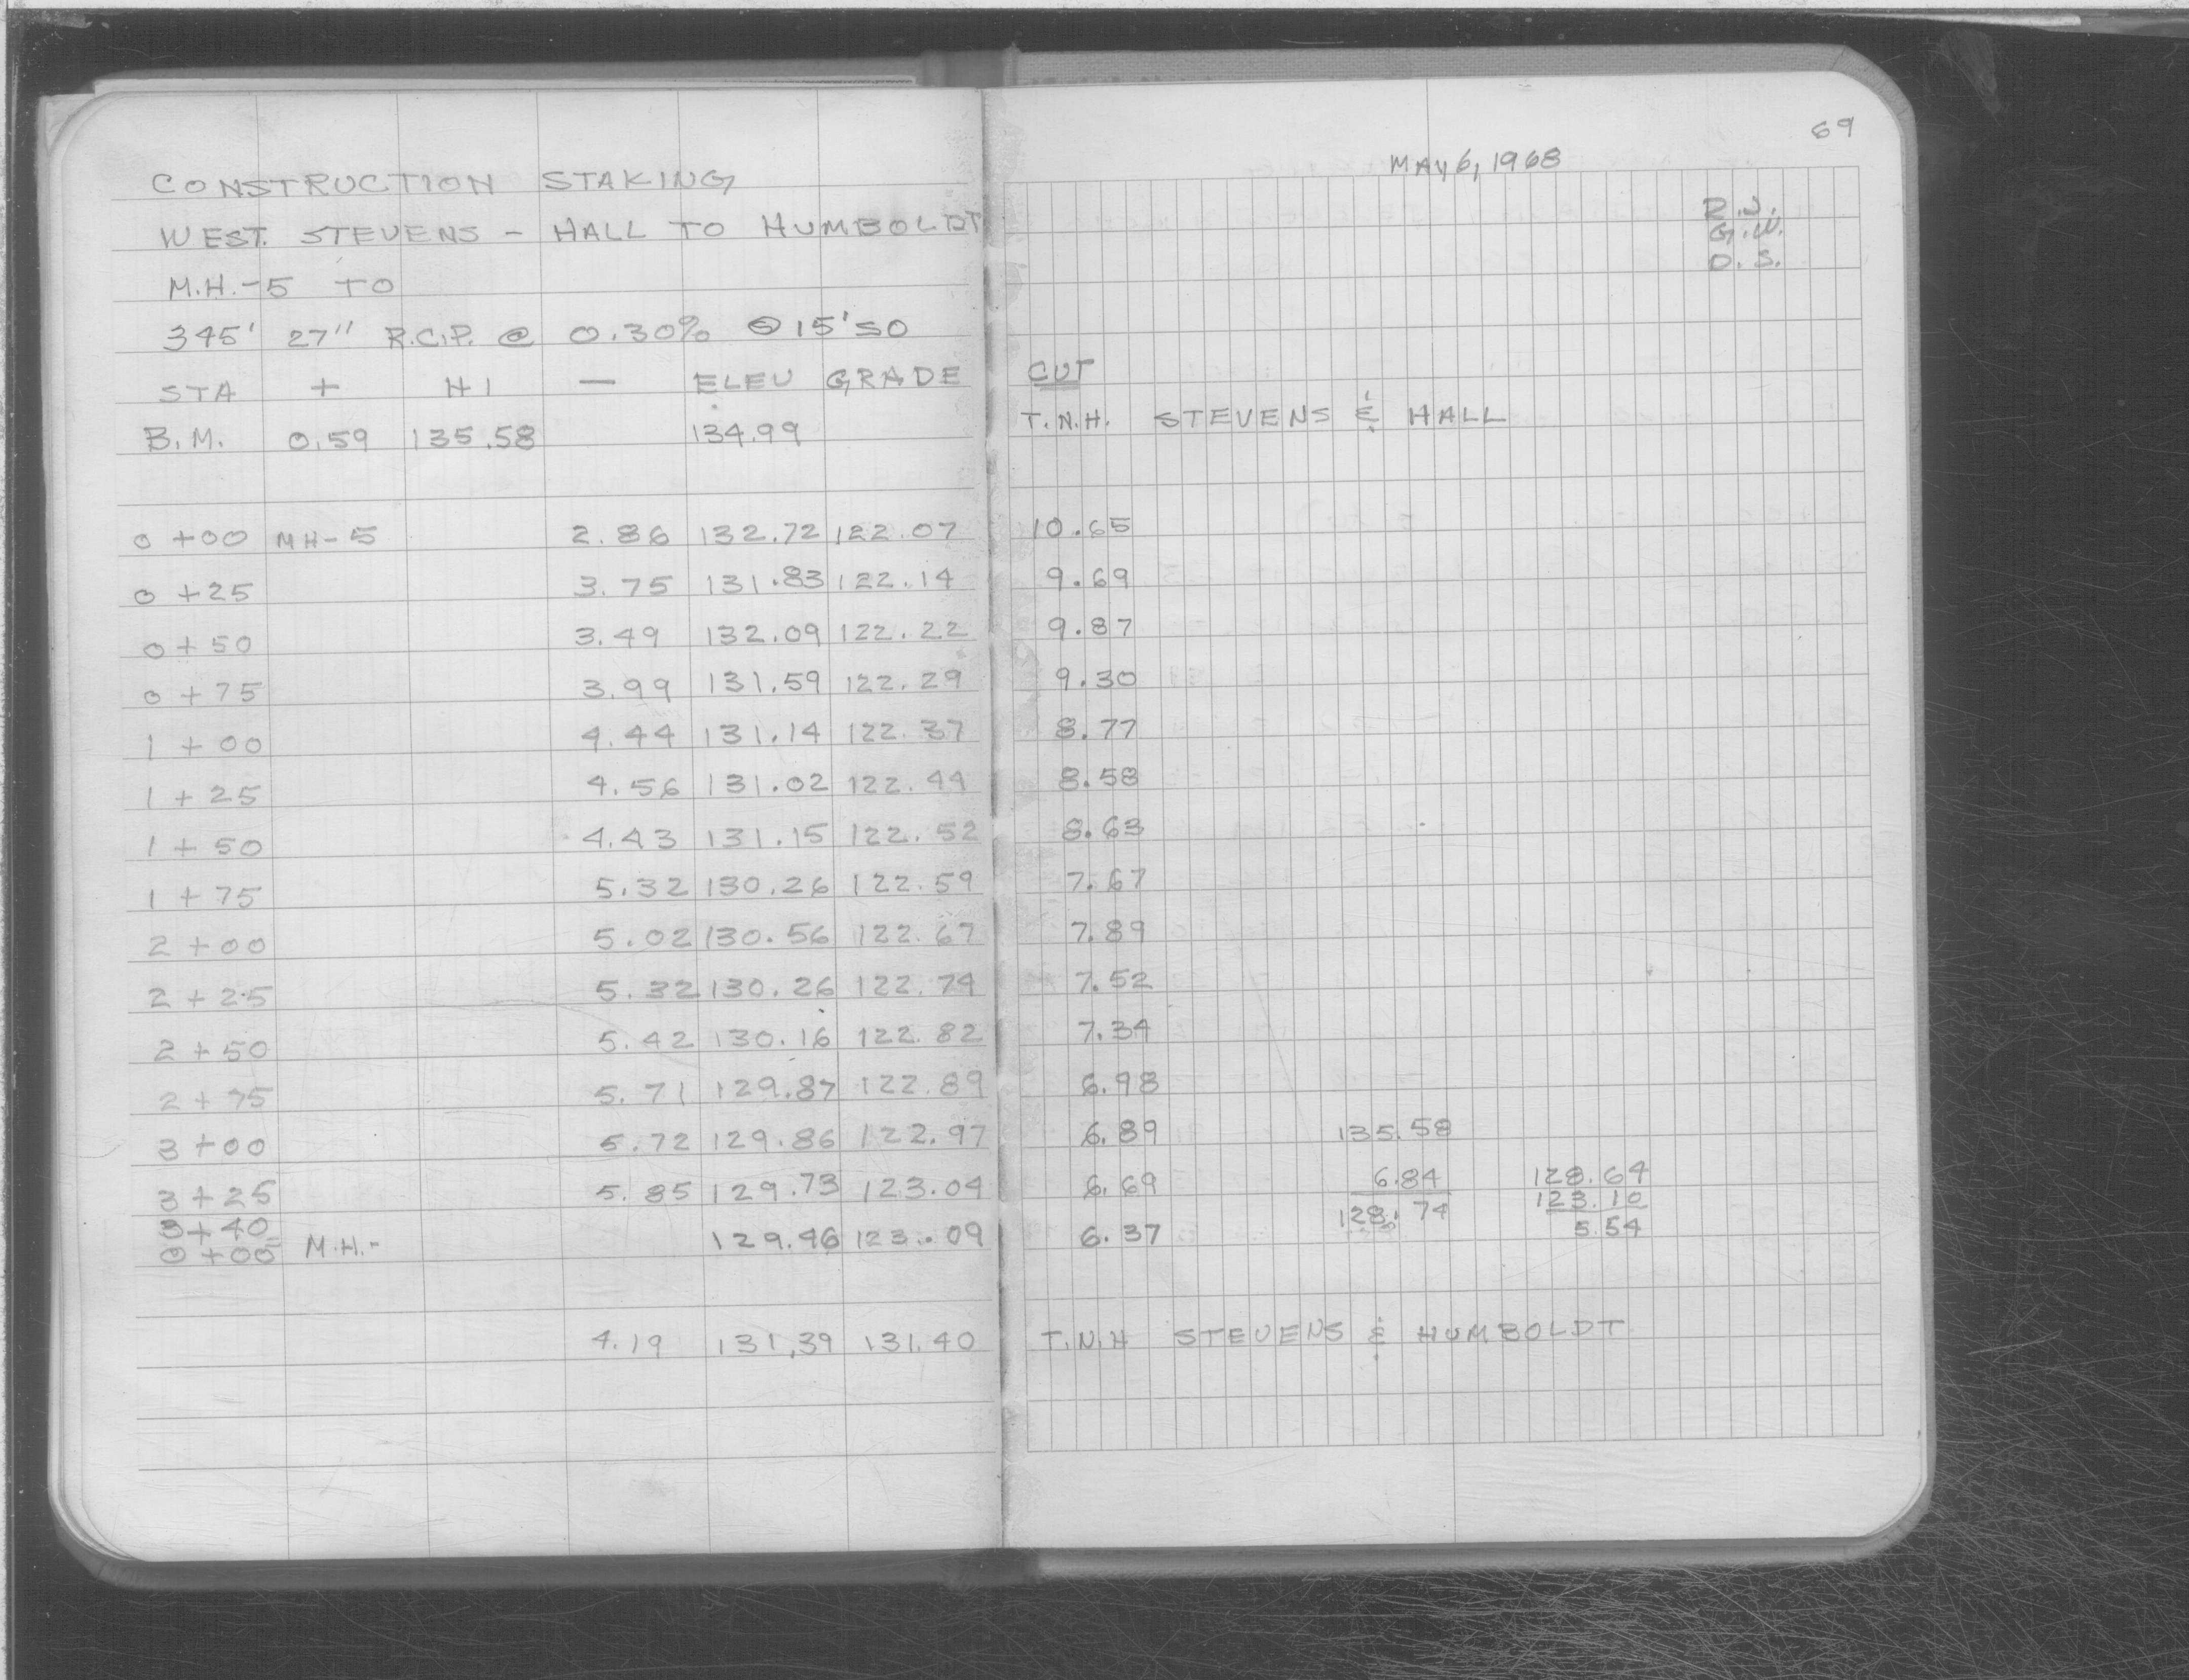 CONSTRUCTION STAKING
WEST. STEVENS - HALL TO HUMBOLDT
M.H.-5 TO
345' 27" R.C.P. @ 0.30% @ 15' SO
STA + HI - ELEV GRADE
B.M. 0.59 135.58 134.99
0+00 MH-5 2.86 132.72 122.07
0+25 3.75 131.83 122.14
0+50 3.49 132.09 122.22
0+75 3.99 131.59 122.29
1+00 4.44 131.14 122.37
1+25 4.56 131.02 122.44
1+50 4.43 131.15 122.52
1+75 5.32 130.26 122.59
2+00 5.02 130.56 122.67
2+25 5.32 130.26 122.74
2+50 5.42 130.16 122.82
2+75 5.71 129.87 122.89
3+00 5.72 129.86 122.97
3+25 5.85 129.73 123.04
3+40
0+00 M.H.- 129.46 123.09
4.19 131.39 131.40
69
MAY 6, 1968
G.W.
D.S.
CUT
T.N.H. STEVENS & HALL
10.65
9.69
9.87
9.30
8.77
8.58
8.63
7.67
7.89
7.52
7.34
6.98
6.89 135.58
6.69 6.84 128.64
128.74 123.10
6.37 5.54
T.N.H STEVENS & HUMBOLDT